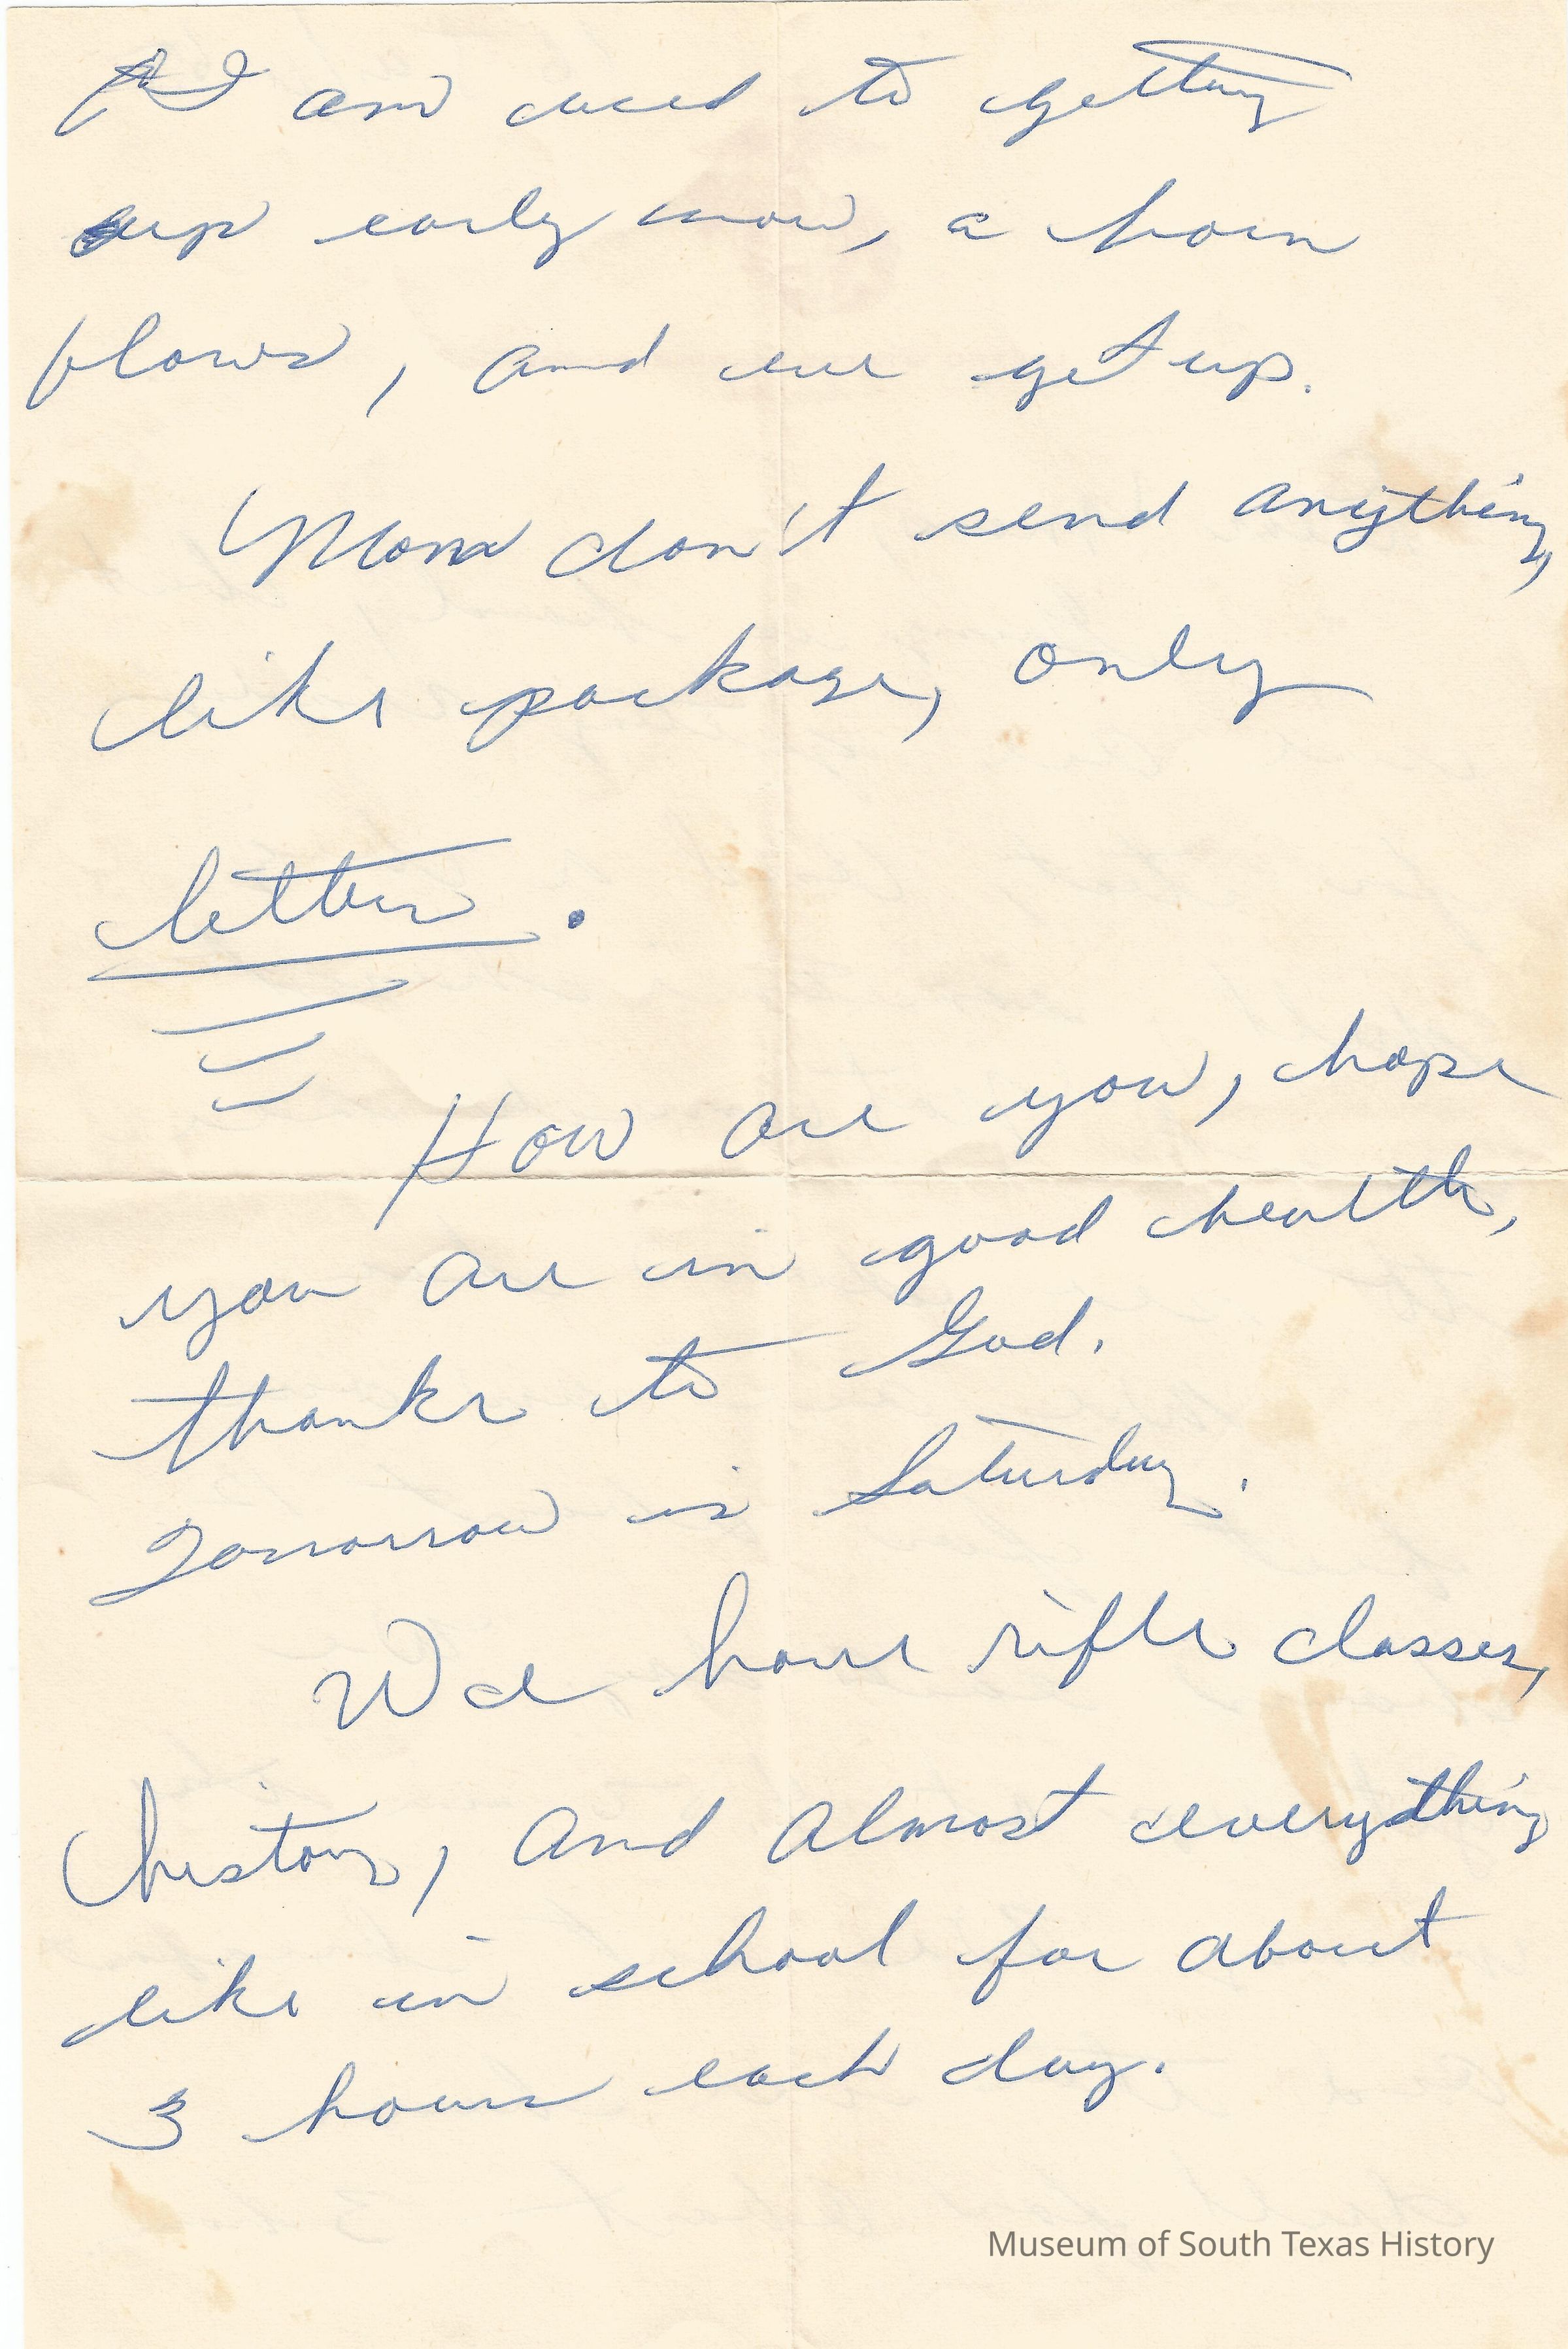 I am used to getting
up early now, a horn
blows, and we get up.
Mom don't send anything,
like package, only
letter.
How are you, hope
you are in good health,
thanks to God.
Tomorrow is Saturday.
We have rifle classes,
history, and almost everything
like in school for about
3 hours each day.
Museum of South Texas History